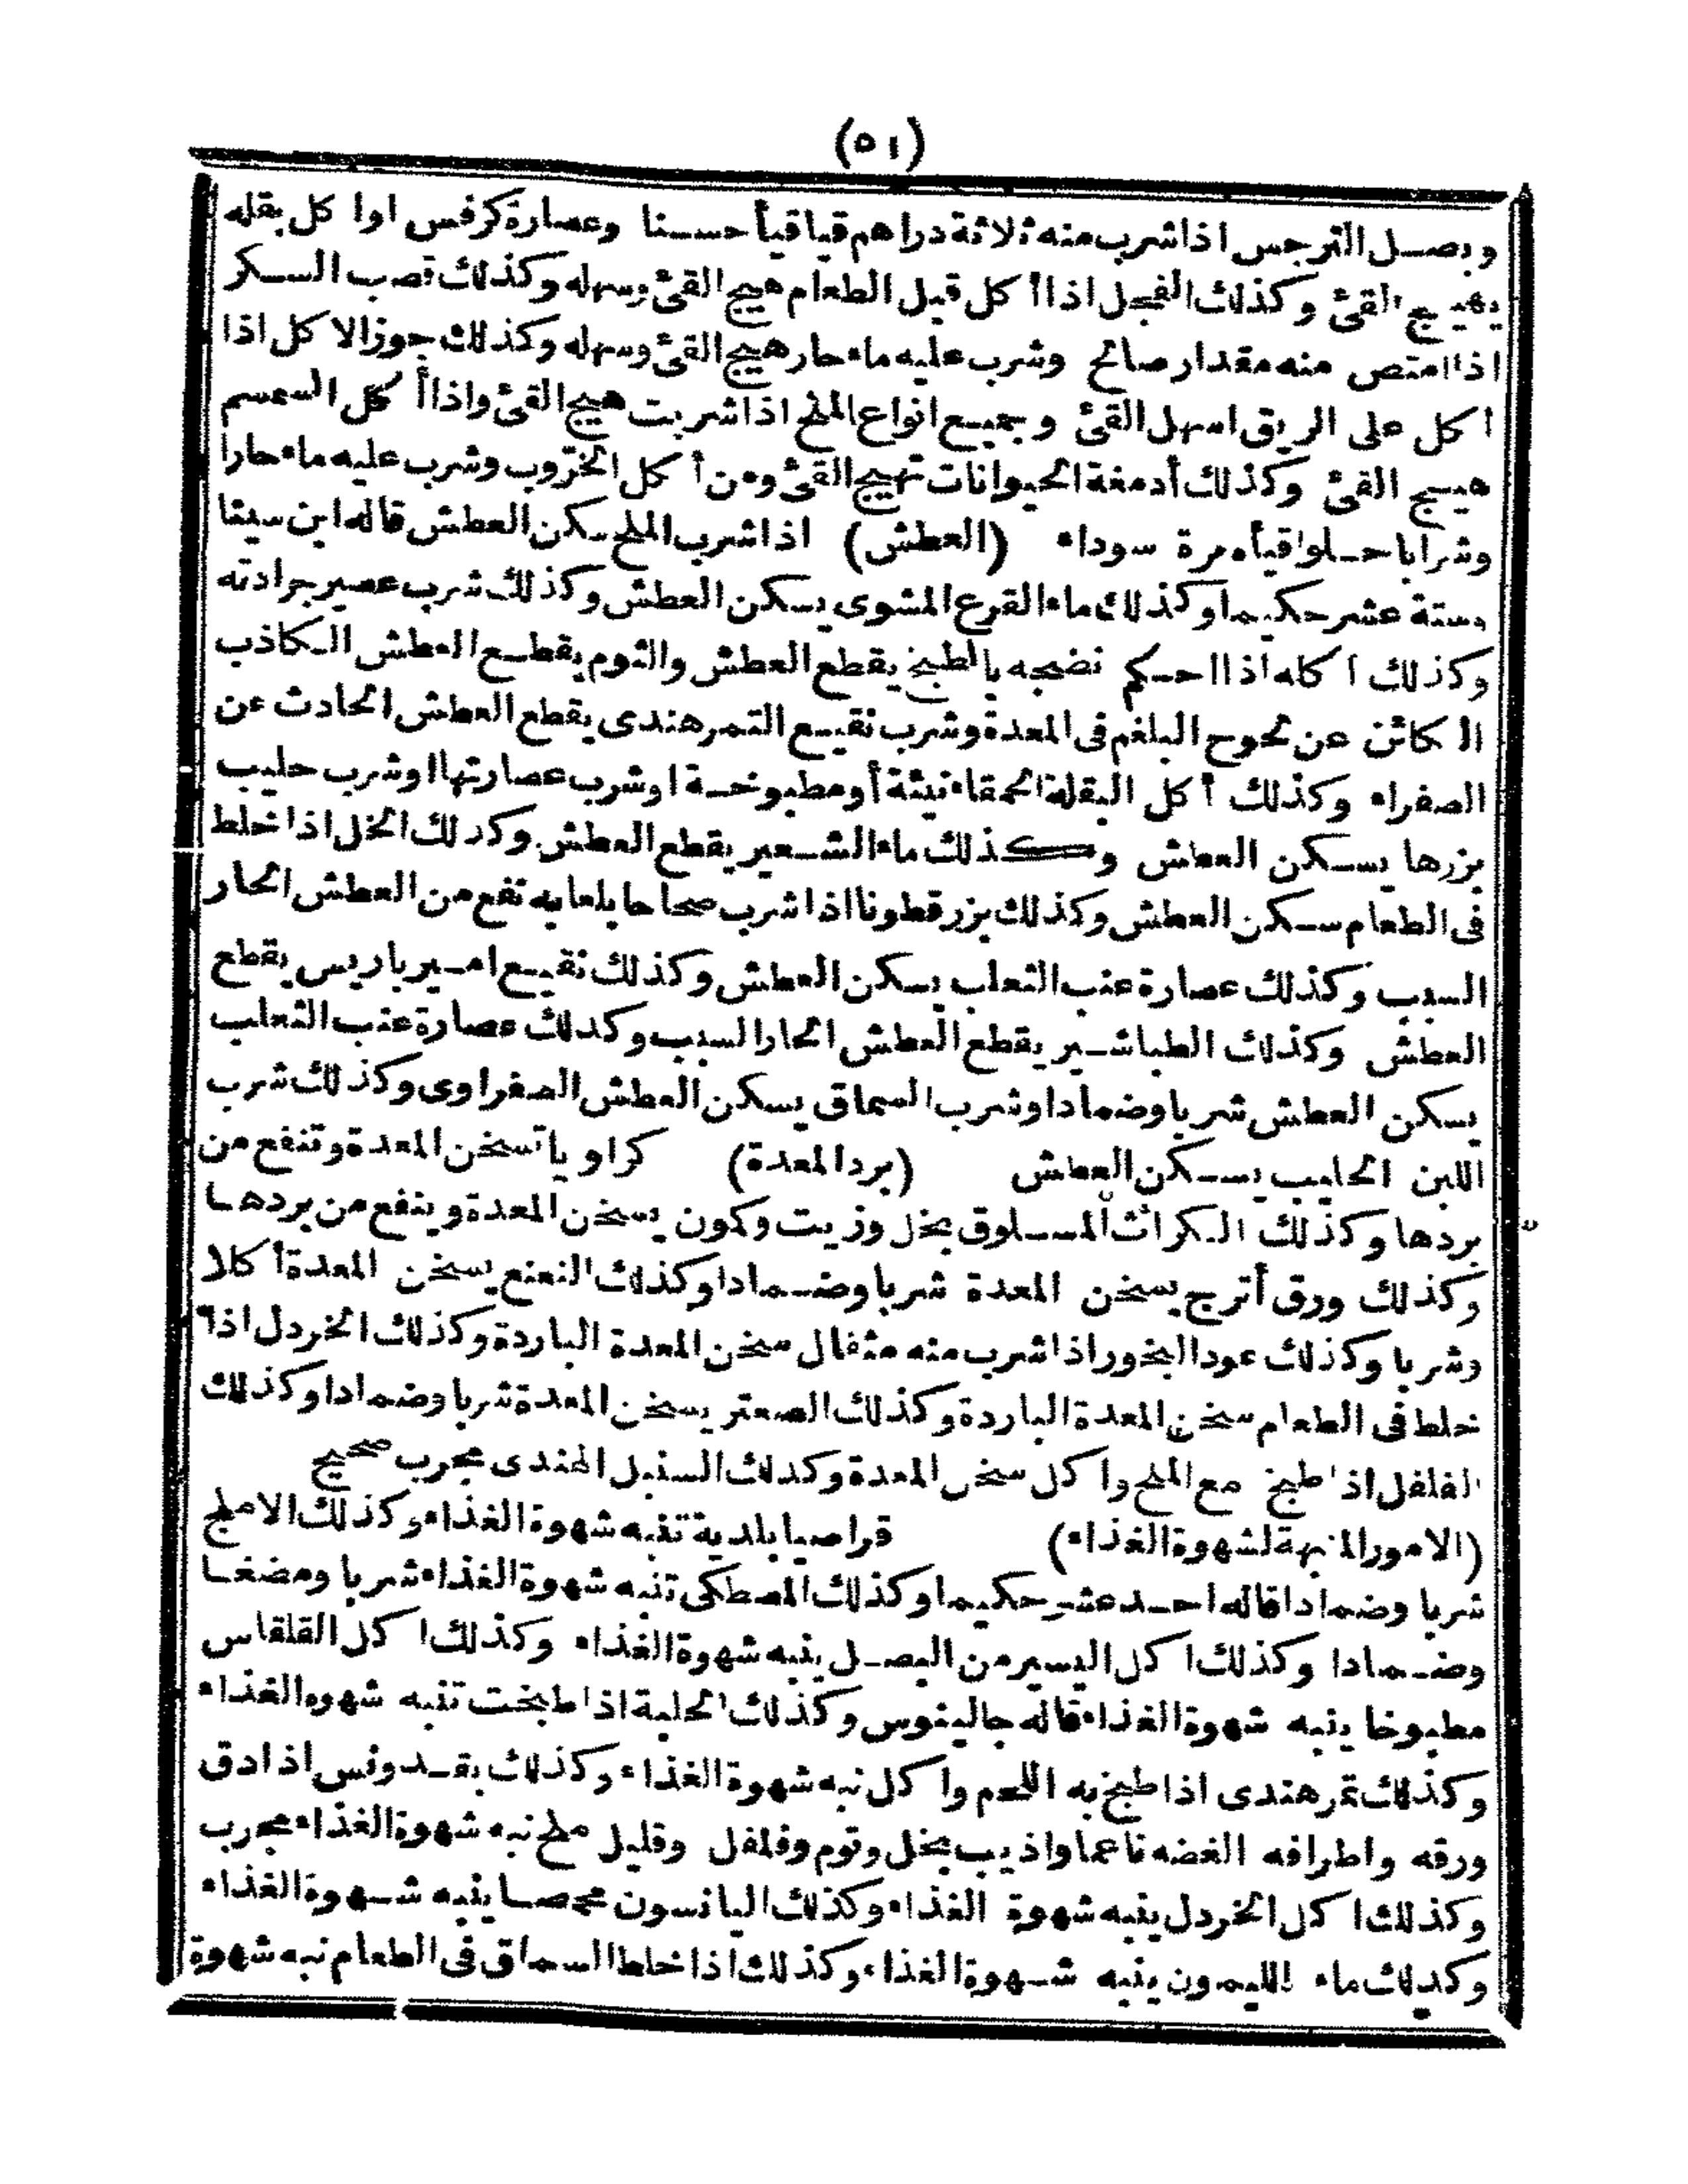 (٥١)
وبصل النرجس اذا شرب منه ثلاثة دراهم قيا قيأ حسنا وعصارة كرفس اوا كل بقله
يهيج القئ وكذلك الفجل اذا أكل قبل الطعام هيج القئ وسهله وكذلك قصب السكر
اذا امتص منه مقدار صالح وشرب عليه ماء حار هيج القئ وسهله وكذلك جوز الاكل اذا
اكل على الريق اسهل القئ وجميع انواع الملح اذا شربت هيج القئ واذا أكل السمسم
هيج القئ وكذلك أدمغة الحيوانات تهيج القئ ومن أكل الخروب وشرب عليه ماء حارا
وشرابا حلوا قيأه مرة سوداء (العطش) اذا شرب الملح سكن العطش قاله ابن سينا
وستة عشر حكيما وكذلك ماء القرع المشوى يسكن العطش وكذلك شرب عصير جرادته
وكذلك اكله اذا احكم نضجه بالطبخ يقطع العطش والثوم يقطع العطش الكاذب
الكائن عن لحوح البلغم فى المعدة وشرب نقيع التمر هندى يقطع العطش الحادث عن
الصفراء وكذلك أكل البقلة الحمقاء نيئة أو مطبوخة اوشرب عصارتها اوشرب حليب
بزرها يسكن العطش وكذلك ماء الشعير يقطع العطش وكدلك الخل اذا خلط
فى الطعام سكن العطش وكذلك بزر قطونا اذا شرب صحاحا بلعابه نفع من العطش الحار
السبب وكذلك عصارة عنب الثعلب يسكن العطش وكذلك نقيع امير باريس يقطع
العطش وكذلك الطباشير يقطع العطش الحار السبب وكدلك عصارة عنب الثعلب
يسكن العطش شربا وضمادا وشرب السماق يسكن العطش الصفراوى وكذلك شرب
اللبن الحليب يسكن العطش (برد المعدة) كراويا تسخن المعدة وتنفع من
بردها وكذلك الكراث المسلوق بخل وزيت وكمون يسخن المعدة وينفع من بردها
وكذلك ورق أترج يسخن المعدة شربا وضمادا وكذلك النعنع يسخن المعدة أكلا
وشربا وكذلك عود البخور اذا شرب منه مثقال سخن المعدة الباردة وكذلك الخردل اذا
خلط فى الطعام سخن المعدة الباردة وكذلك الصعتر يسخن المعدة شربا وضمادا وكذلك
الفلفل اذا طبخ مع الملح واكل سخن المعدة وكدلك السنبل الهندى مجرب صحيح
(الامور المنبهة لشهوة الغذاء) قراصيا بلدية تنبه شهوة الغذاء وكذلك الاملج
شربا وضمادا قاله احد عشر حكيما وكذلك المصطكى تنبه شهوة الغذاء شربا ومضغا
وضمادا وكذلك اكل اليسير من البصل ينبه شهوة الغذاء وكذلك اكل القلقاس
مطبوخا ينبه شهوة الغذاء قاله جالينوس وكذلك الحلبة اذا طبخت تنبه شهوه الغذاء
وكذلك تمر هندى اذا طبخ به اللحم واكل نبه شهوة الغذاء وكذلك بقدونس اذا دق
ورقه واطرافه الغضه ناعما واذيب بخل وتوم وفلفل وقليل ملح نبه شهوة الغذاء مجرب
وكذلك اكل الخردل ينبه شهوة الغذاء وكذلك اليانسون محمصا ينبه شهوة الغذاء
وكدلك ماء الليمون ينبه شهوة الغذاء وكذلك اذا خلط السماق فى الطعام نبه شهوة